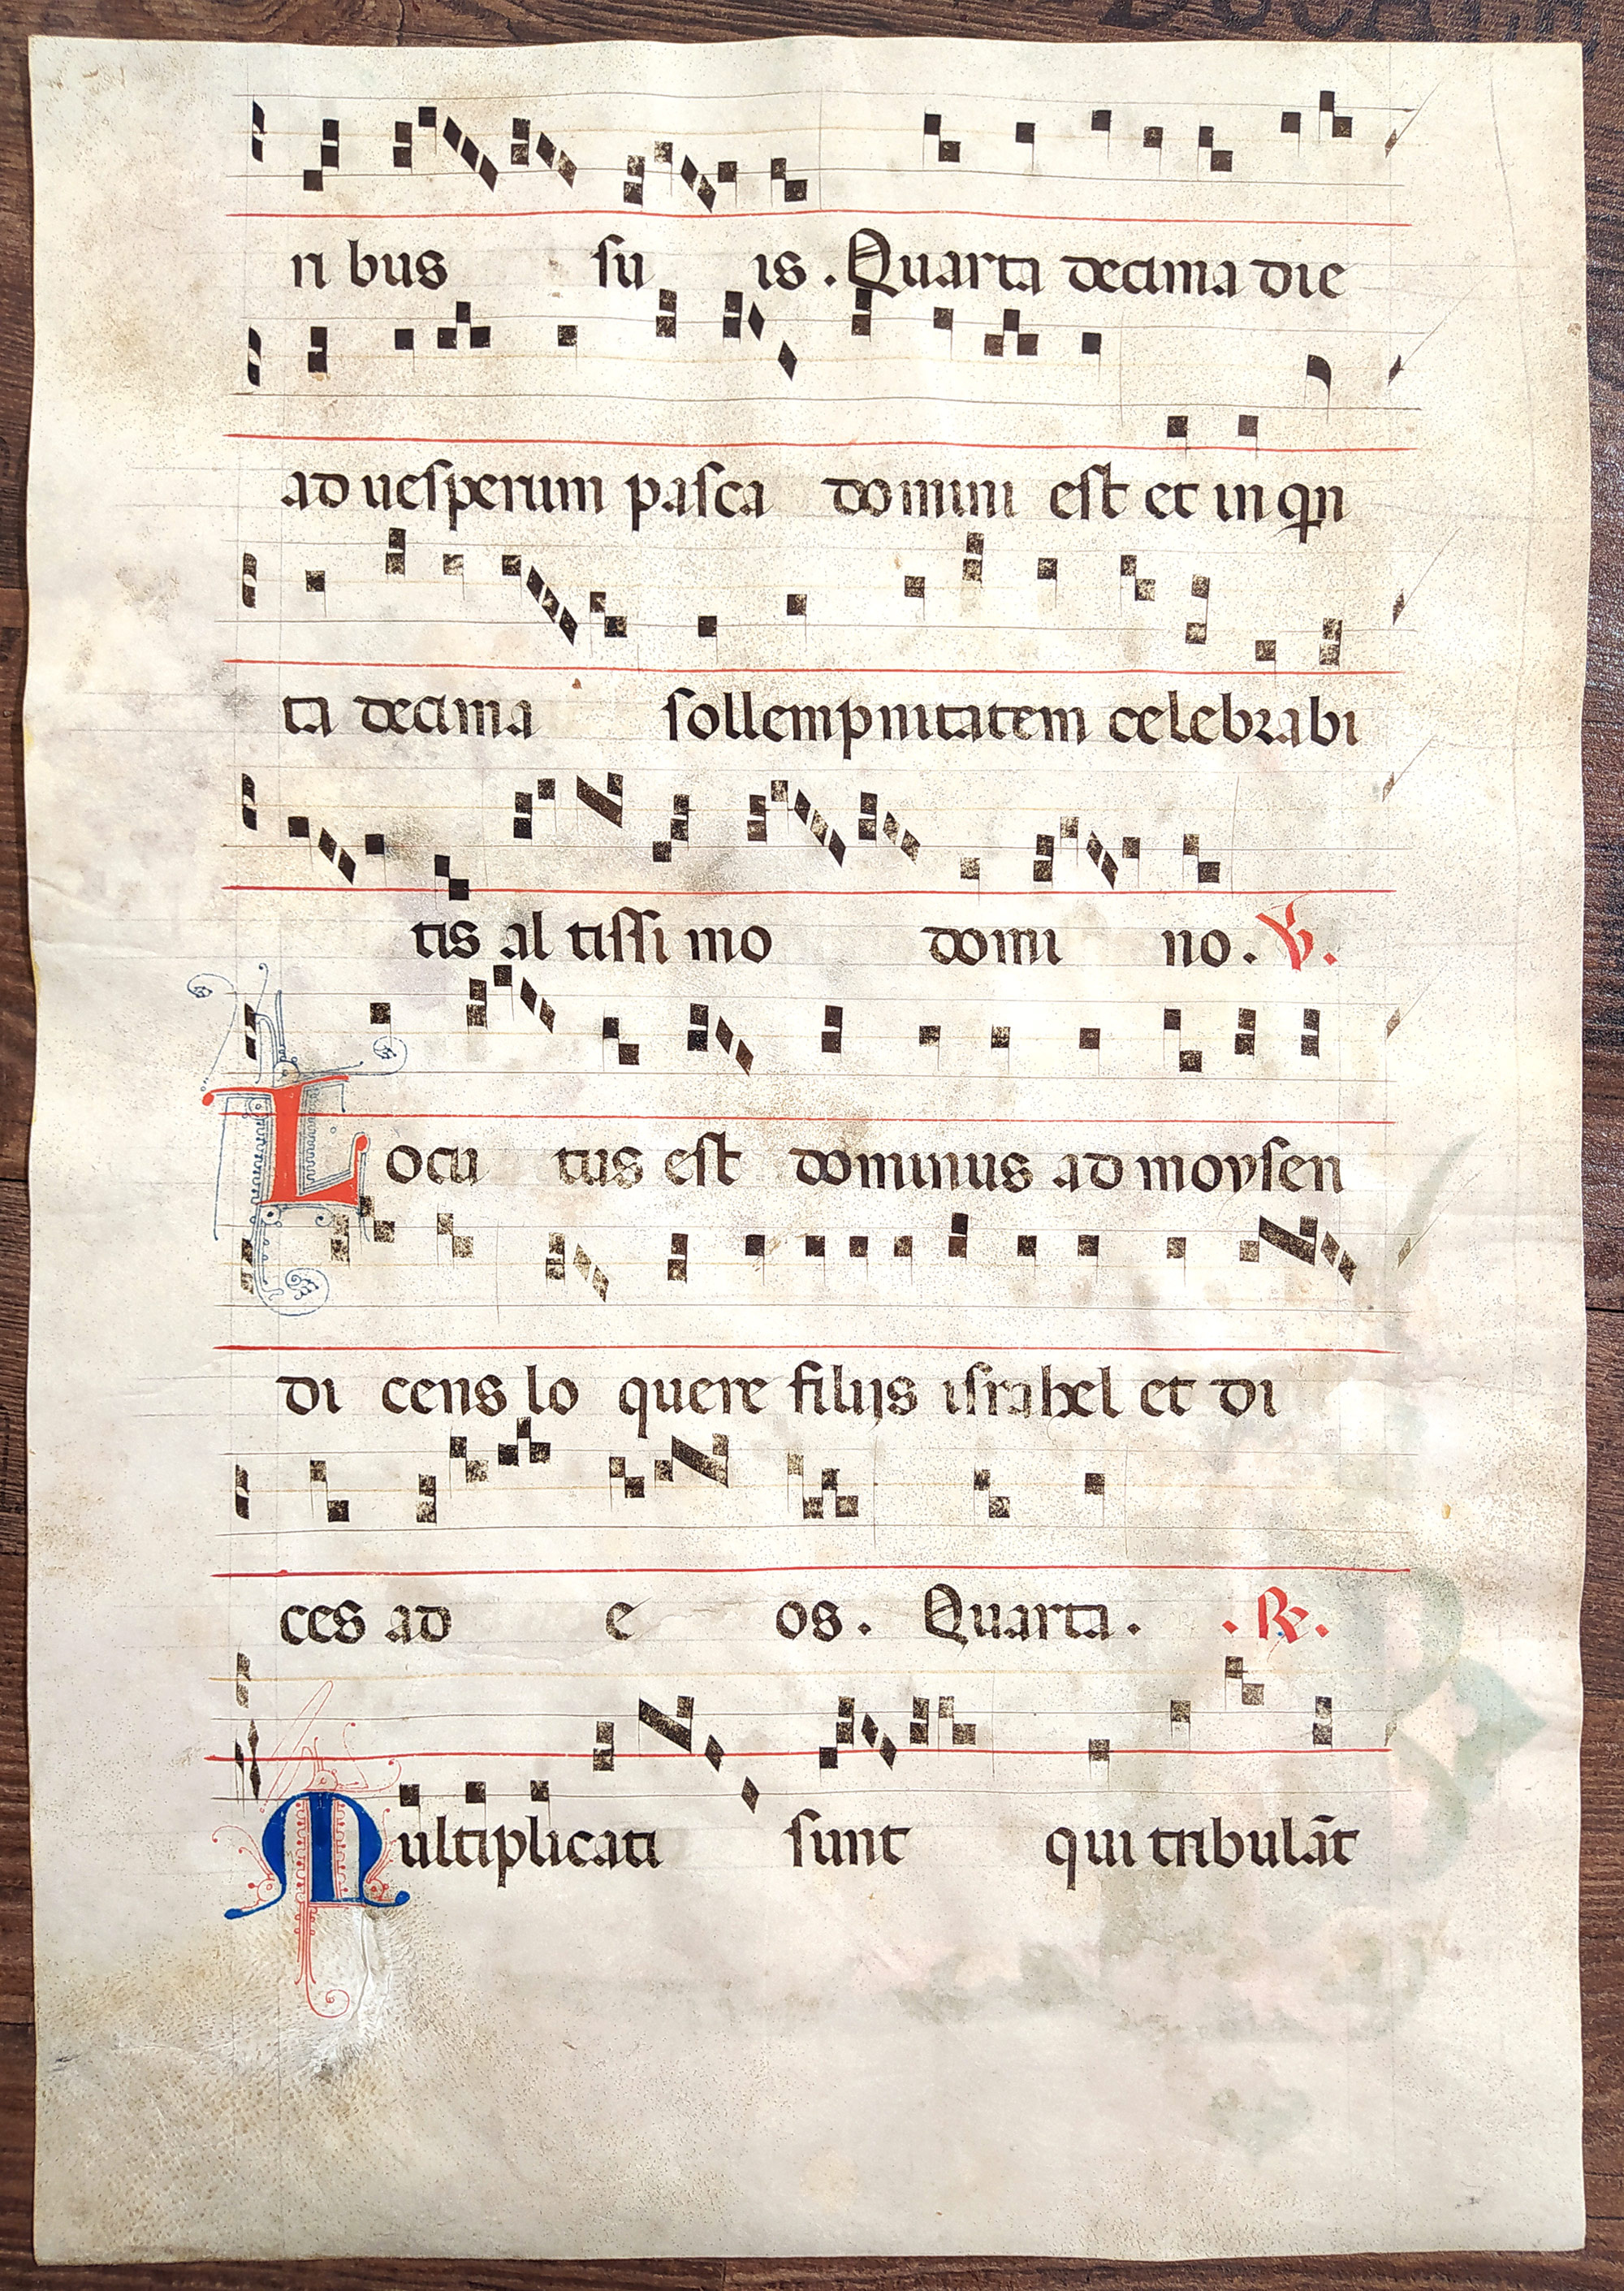 ri bus su is. Quarta decima die
ad uesperum pasca domini est et in qn
ta decima sollempnitatem celebrabi
tis al tissi mo domi no. V.
Locu tus est dominus ad moysen
di cens lo quere filijs israhel et di
ces ad e os. Quarta. .R.
Multiplicati sunt qui tribulāt